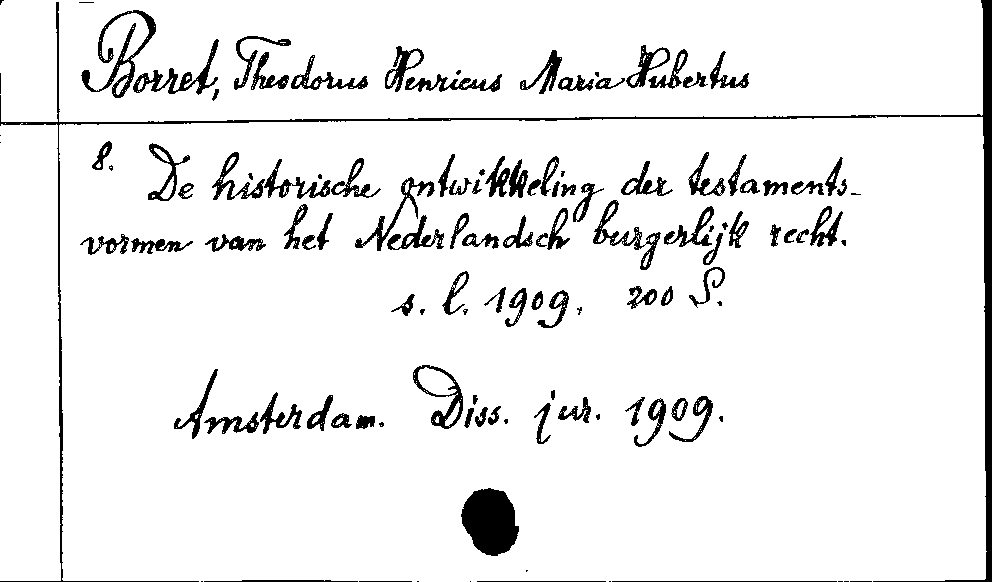 Borret, Theodorus Henricus Maria Hubertus
8. De historische ontwikkeling der testaments-
vormen van het Nederlandsch burgerlijk recht.
s. l. 1909. 200 S.
Amsterdam. Diss. jur. 1909.